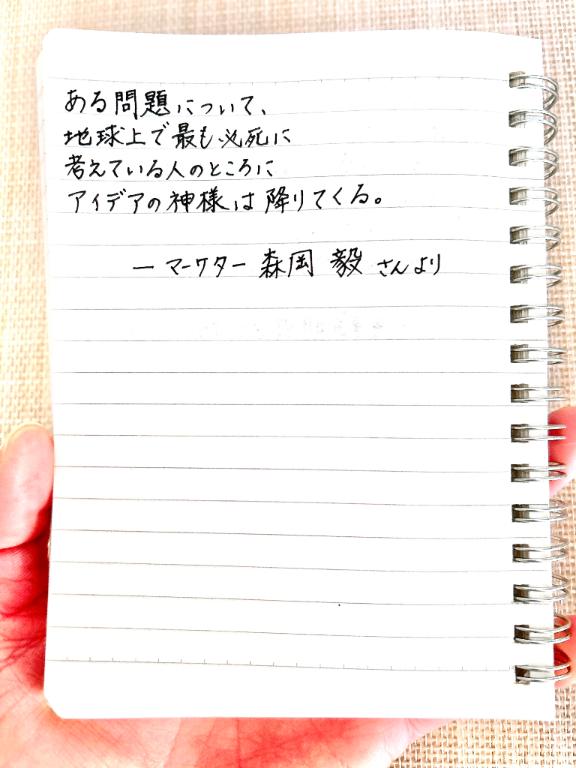 ある問題について、
地球上で最も必死に
考えている人のところに
アイデアの神様は降りてくる。
ー マーケター 森岡 毅 さんより